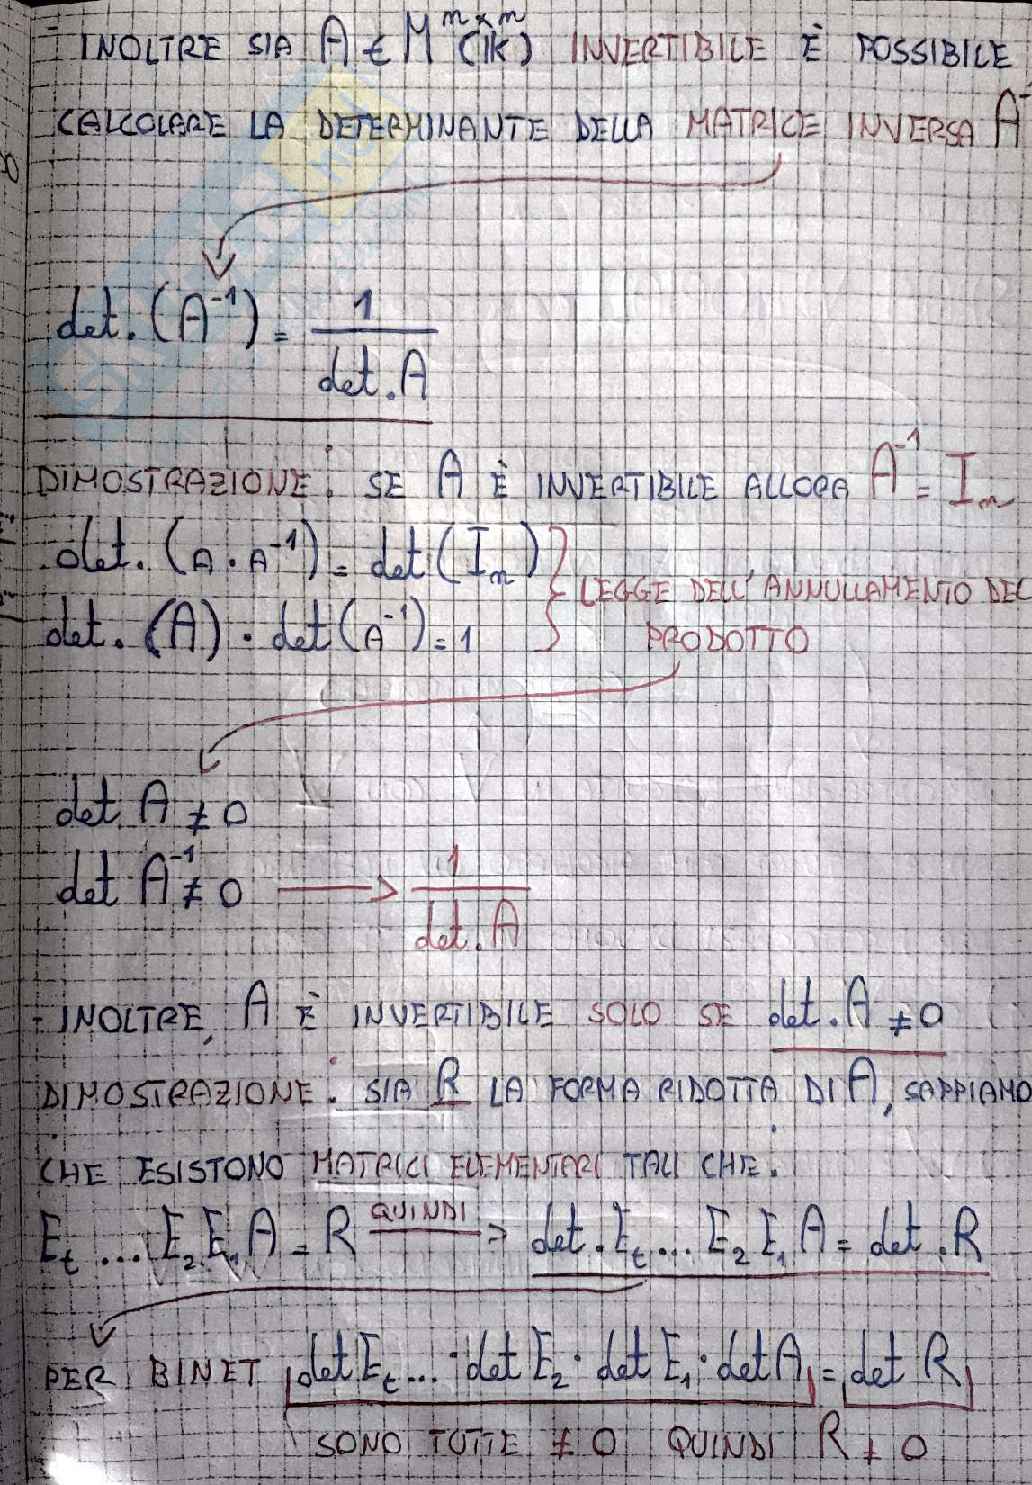 - INOLTRE SIA A ∈ M^{n×n}(IK) INVERTIBILE È POSSIBILE
CALCOLARE LA DETERMINANTE DELLA MATRICE INVERSA A^-
det.(A^{-1}) = 1 / det.A
DIMOSTRAZIONE: SE A È INVERTIBILE ALLORA A^{-1} = I_n
det.(A·A^{-1}) = det(I_n)
det.(A)·det(A^{-1}) = 1
LEGGE DELL'ANNULLAMENTO DEL
PRODOTTO
det. A ≠ 0
det A^{-1} ≠ 0 → 1 / det.A
- INOLTRE, A È INVERTIBILE SOLO SE det.A ≠ 0
DIMOSTRAZIONE: SIA R LA FORMA RIDOTTA DI A, SAPPIAMO
CHE ESISTONO MATRICI ELEMENTARI TALI CHE:
E_t ... E_2 E_1 A = R QUINDI ⇒ det.E_t ... E_2 E_1 A = det.R
PER BINET det E_t ... · det E_2 · det E_1 · det A = det R
SONO TUTTE ≠ 0 QUINDI R ≠ 0